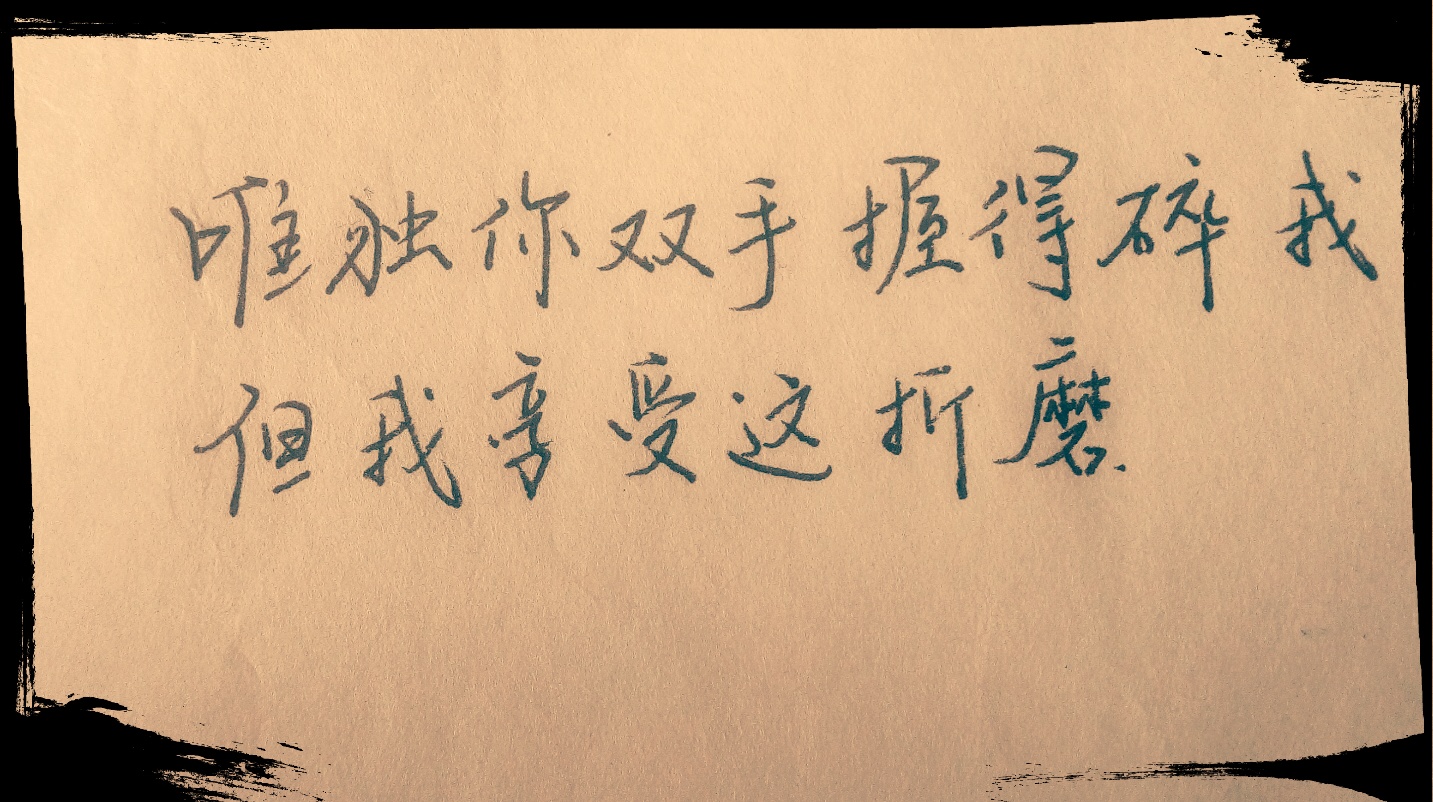 唯独你双手握得碎我
但我享受这折磨.